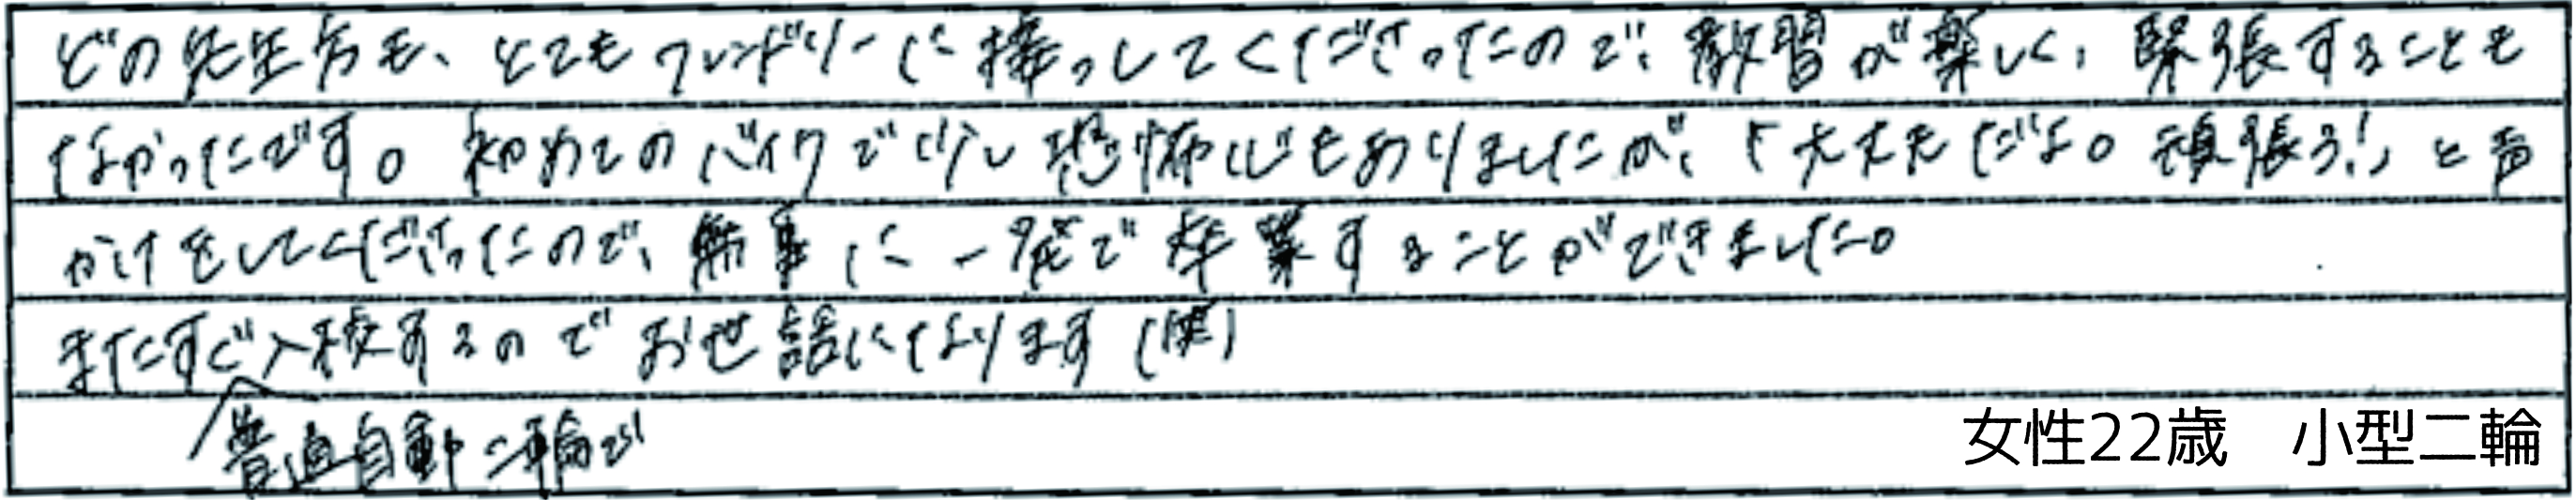 どの先生方も、とてもフレンドリーに接っしてくださったので、教習が楽しく、緊張することも
なかったです。初めてのバイクで少し恐怖心もありましたが、「大丈夫だよ。頑張ろ！」と声
がけをしてくださったので、無事に一発で卒業することができました。
またすぐ入校するのでお世話になります（笑）
普通自動二輪で
女性22歳　小型二輪